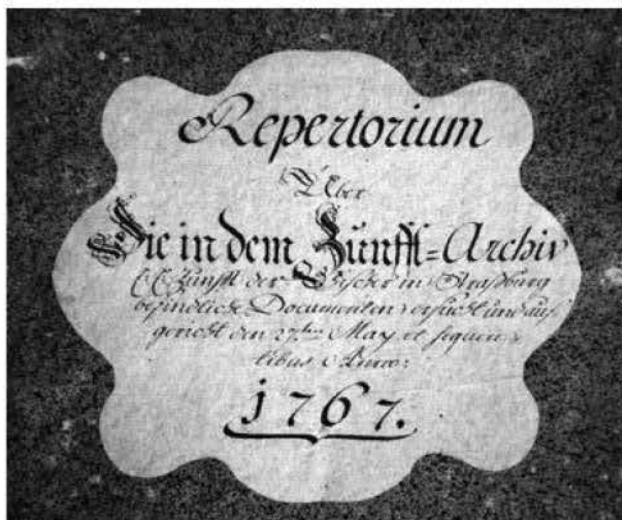 Repertorium
Über
Die in dem Zunfft=Archiv
E. E. Zunfft der Fischer in Straßburg
befindliche Documenten, ersucht und auf
gericht den 27ten May et sequen=
tibus Anno:
1767.